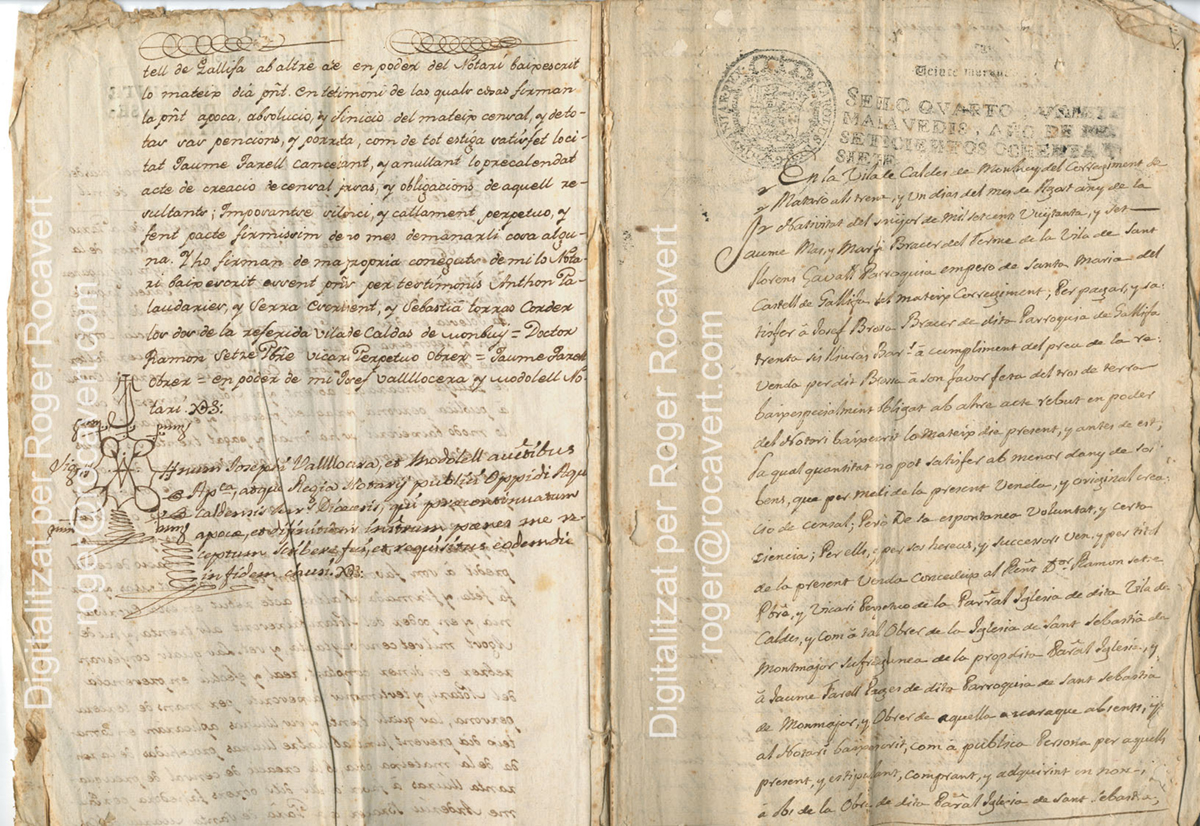 tell de Gallifa ab altre acte en poder del Notari baixescrit
lo mateix dia pnt. En testimoni de las quals cosas firman
la pnt apoca, absolucio, y finicio del mateix censal, y de to-
tas sas pencions, y porrata, com de tot estiga satisfet lo ci-
tat Jaume Farell cancelant, y anullant lo precalendat
acte de creacio de censal juras, y obligacions de aquell re-
sultants; Imposantse silenci, y callament, perpetuo, y
fent pacte firmissim de no mes demanarli cosa algu-
na. Y ho firman de ma propria coneguts de mi lo Nota-
ri baixescrit essent pnts per testimonis Anthon Pa-
laudarias, y Serra Escrivent, y Sebastiá torras Corder
los dos de la referida Vila de Caldas de Monbuy = Doctor
Ramon Setre Pbre vicari Perpetuo Obrer = Jaume Farell
Obrer = en poder de mi Josef Vallllocera y Modolell No-
tari.
Sig
num Josephi Vallllocera, et Modolell auctibus
Apca, atque Regia Notarii publici Oppidi Aqua
Calidensis Diocesis, qui praecontinuatum
apocæ, et difinicionis Instrum penes me re-
ceptum scribere feci, et requisitus eodem die
in fidem clausi.
Veinte marav
SELLO QVARTO, VEINTE
MARAVEDIS, AÑO DE MIL
SETECIENTOS OCHENTA Y
SIETE.
En la Vila de Caldes de Monbuy del Corregiment de
Mataro als trenta, y Un dias del mes de Agost any de la
Nativitat del Senyor de Mil Setcents Vuytanta, y Set
Jaume Mas, y Marti Bracer del Terme de la Vila de Sant
Llorens Savall Parroquia empero de Santa Maria del
Castell de Gallifa del mateix Corregiment; Per pagar, y sa-
tisfer à Josef Brosa Bracer de dita Parroquia de Gallifa
trenta sis lliuras Bar.s à cumpliment del preu de la re-
Venda per dit Brosa à son favor feta del tros de terra
baix especialment obligat ab altre acte rebut en poder
del Notari baixescrit lo mateix dia present, y antes de est;
La qual quantitat no pot satisfer ab menor dany de sos
bens, que per medi de la present Venda, y original crea-
cio de censal; Però De la espontanea Voluntat, y certa
ciencia; Per ells, e per sos hereus, y successors Ven, y per titol
de la present Venda Concedeix al Reñt Dor Ramon Setre
Pbre, y Vicari Perpetuo de la Parral Iglesia de dita Vila de
Caldes, y com à tal Obrer de la Iglesia de Sant Sebastiá de
Montmajor sufraganea de la propdita Parral Iglesia, y
à Jaume Farell Pages de dita Parroquia de Sant Sebastiá
de Monmajor, y Obrer de aquella encaraque absents, y
al Notari baixescrit, com à publica Persona per aquells
present, y estipulant, comprant, y adquirint en nom, i
à obs de la Obra de dita Parral Iglesia de Sant Sebastiá;
Digitalitzat per Roger Rocavert
roger@rocavert.com
Digitalitzat per Roger Rocavert
roger@rocavert.com